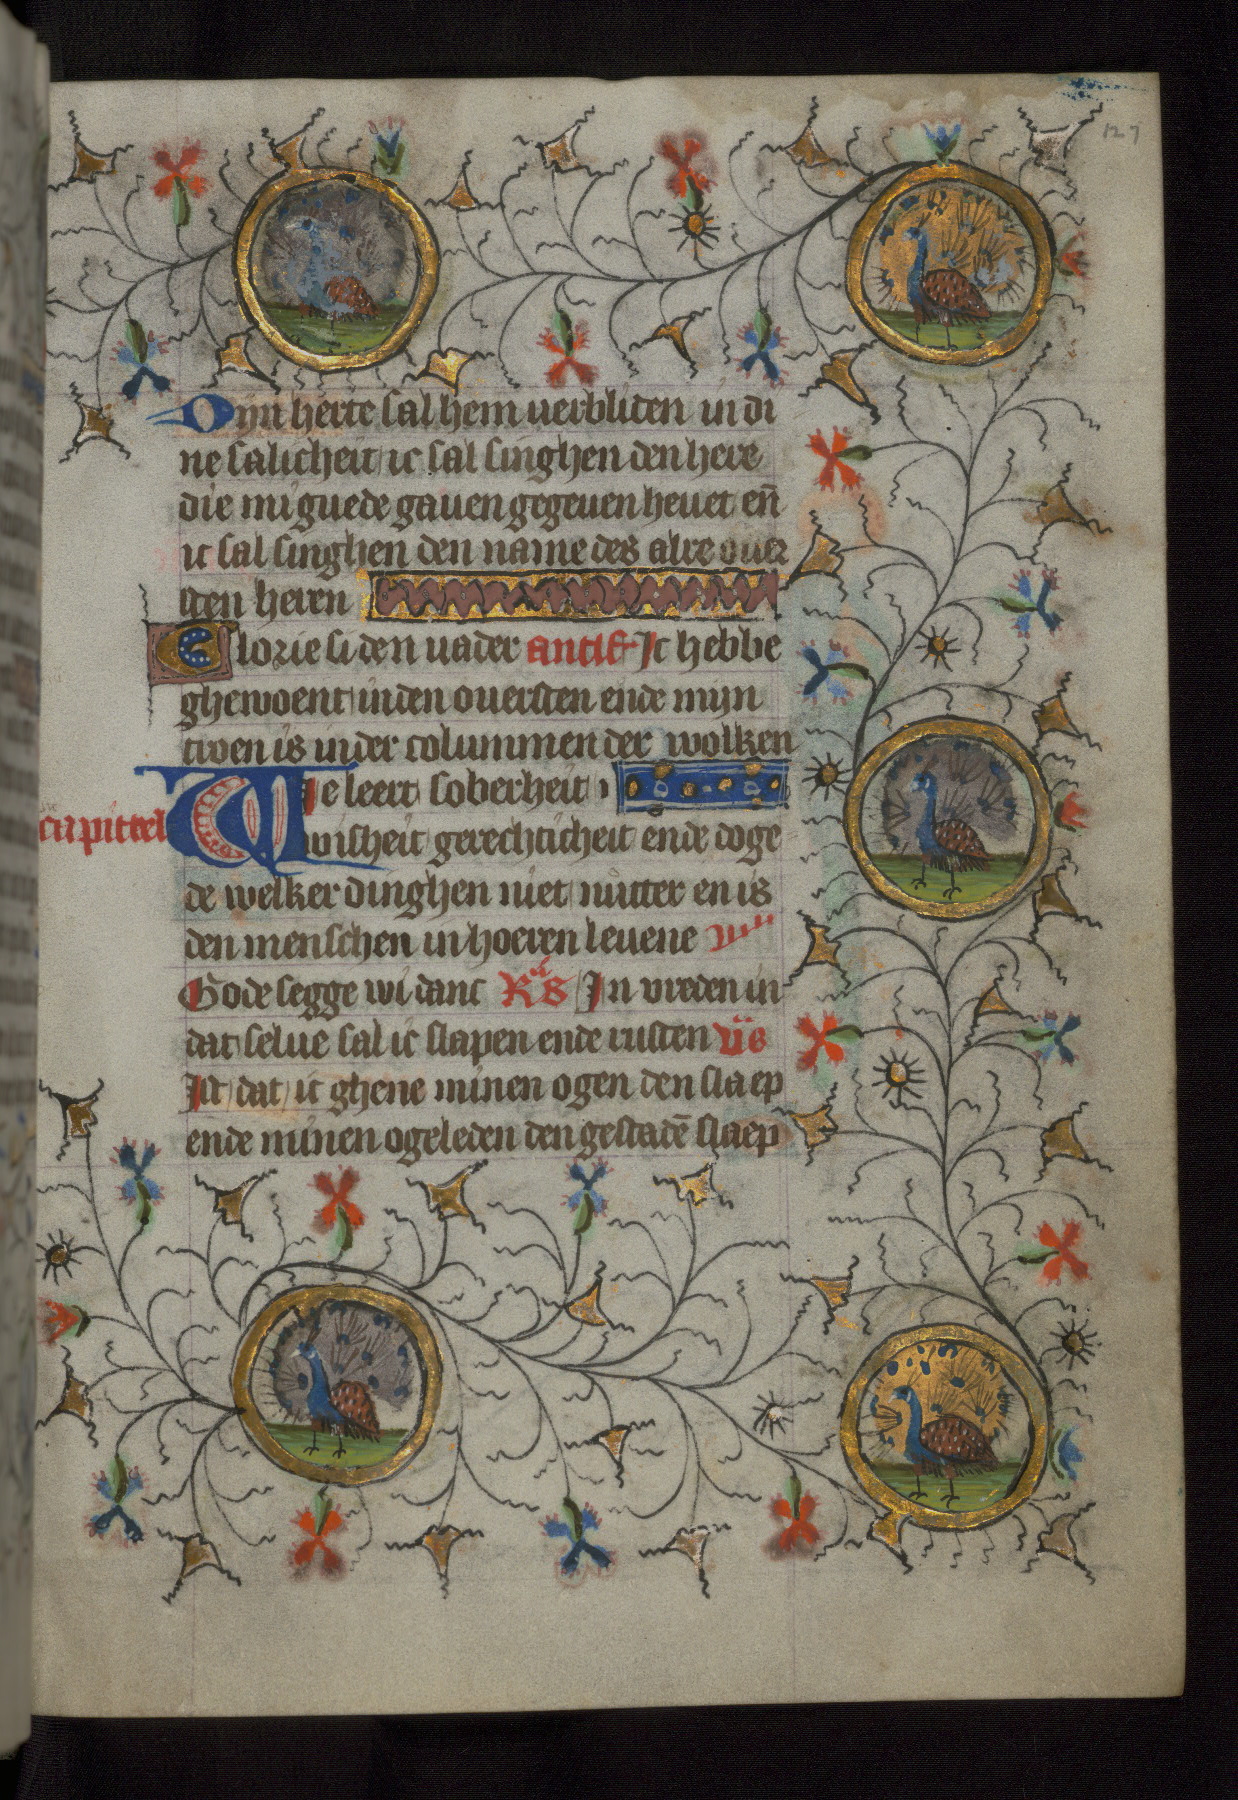 127
Mijn herte sal hem uerbliden in di
ne salicheit ic sal singhen den here
die mi guede gauen gegeuen heuet en̄
ic sal singhen den name des alre ouer
sten heren
Glorie si den uader Ic hebbe
ghewoent inden ouersten ende mijn
troen is inder colummen der wolken
Wie leert soberheit
capittel
wisheit gerechticheit ende doge
de welker dinghen niet nutter en is
den menschen in hoeren leuene
Gode segge wi danc In vreden in
dat seluē sal ic slapen ende rusten
Ist dat ic ghene minen ogen den slaep
ende minen ogeleden den gestadē slaep